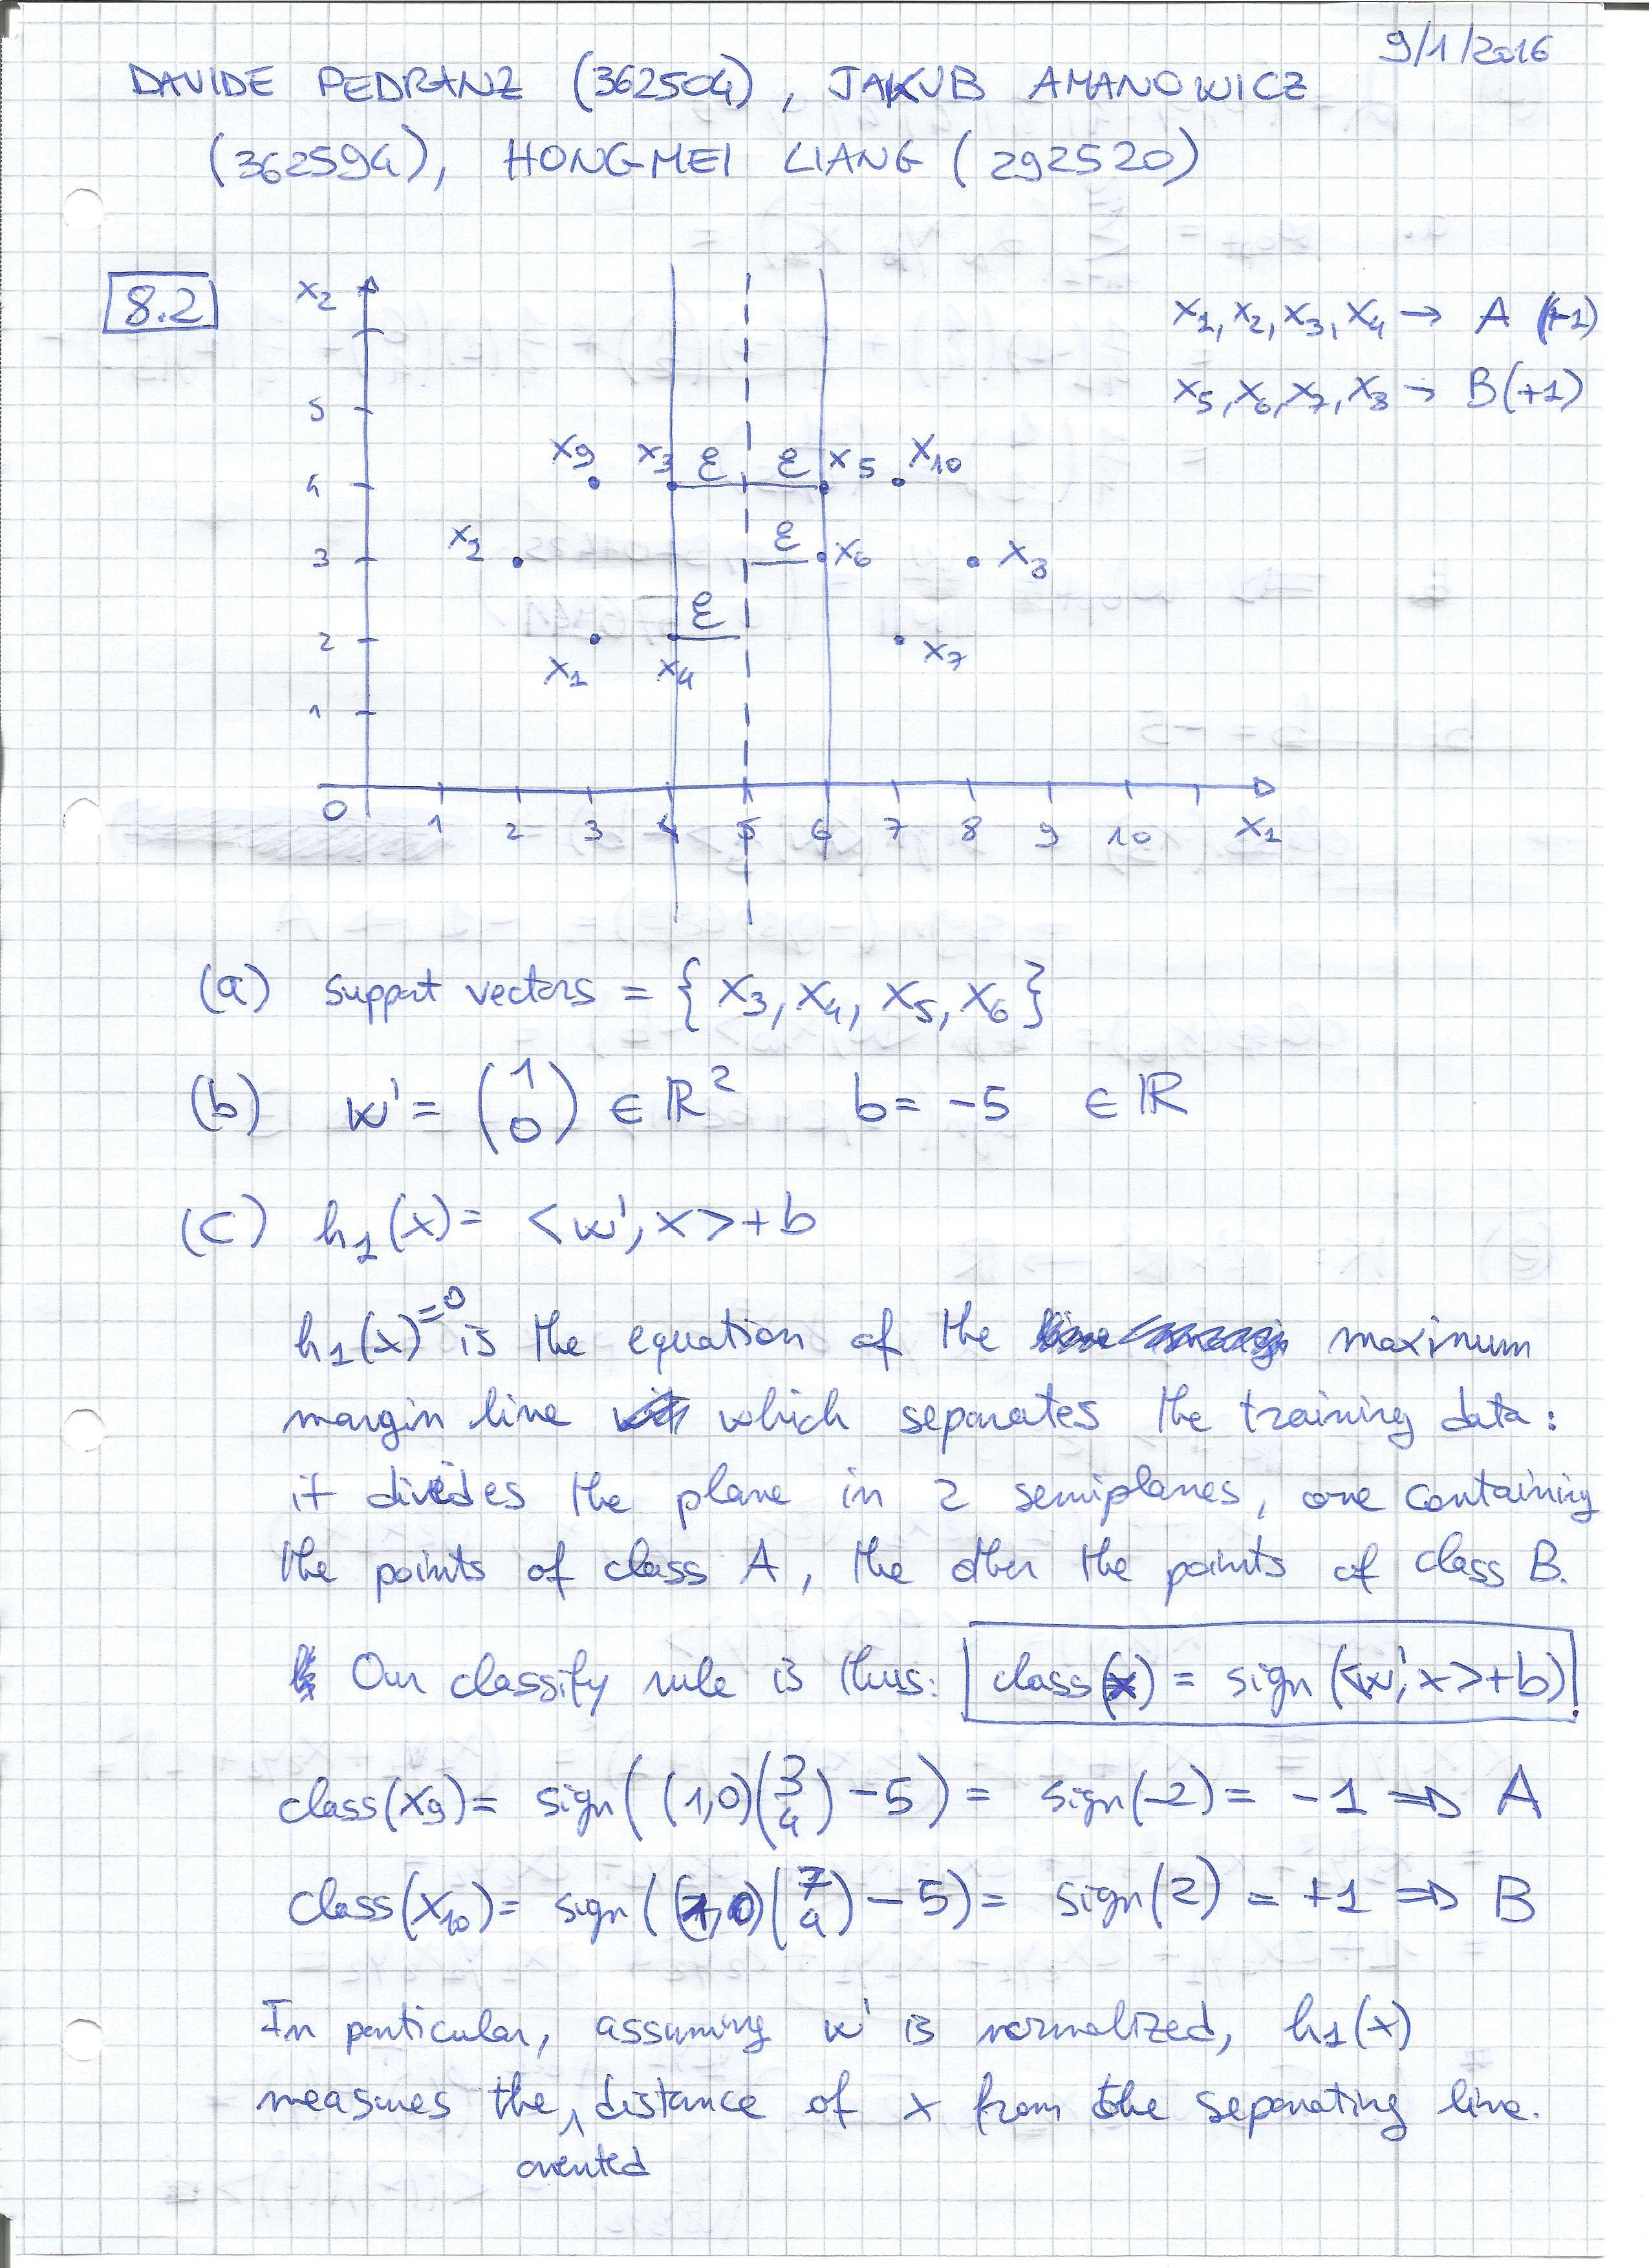 9/1/2016
DAVIDE PEDRANZ (362504), JAKUB AMANOWICZ
(362594), HONGMEI LIANG (292520)
8.2
x₂
x₁, x₂, x₃, x₄ → A (-1)
x₅, x₆, x₇, x₈ → B(+1)
5
x₉ x₃ ε ε x₅ x₁₀
4
x₂ ε x₆ x₈
3
ε
2
x₁ x₄ x₇
1
0 1 2 3 4 5 6 7 8 9 10 x₁
(a) support vectors = { x₃, x₄, x₅, x₆ }
(b) w' = (1 0) ∈ ℝ² b = -5 ∈ ℝ
(c) h₁(x) = <w', x> + b
h₁(x)=0 is the equation of the maximum
margin line which separates the training data:
it divides the plane in 2 semiplanes, one containing
the points of class A, the other the points of class B.
Our classify rule is thus: class(x) = sign(<w', x>+b).
class(x₉) = sign( (1,0)(3 4) - 5) = sign(-2) = -1 ⇒ A
class(x₁₀) = sign( (1,0)(7 4) - 5) = sign(2) = +1 ⇒ B
In particular, assuming w' is normalized, h₁(x)
measures the oriented distance of x from the separating line.